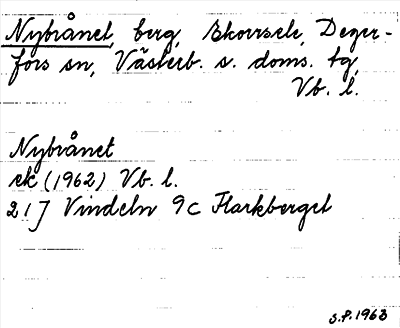 Nybrånet, berg, Skorrsele, Deger-
fors sn, Västerb. s. doms. tg,
Vb. l.
Nybrånet
ek (1962) Vb. l.
21J Vindeln 9c Flarkberget
S.P. 1963